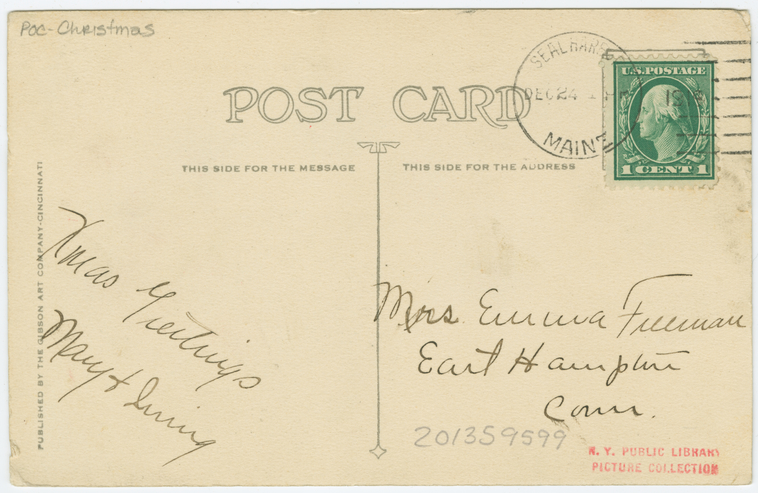 Poc-Christmas
POST CARD
THIS SIDE FOR THE MESSAGE
THIS SIDE FOR THE ADDRESS
SEAL HARBOR
DEC 24
MAINE
U.S. POSTAGE
1 CENT 1
PUBLISHED BY THE GIBSON ART COMPANY-CINCINNATI
Xmas Greetings
Mary & Irving
Mrs Emma Freeman
East Hampton
Conn.
201359599
N. Y. PUBLIC LIBRARY
PICTURE COLLECTION